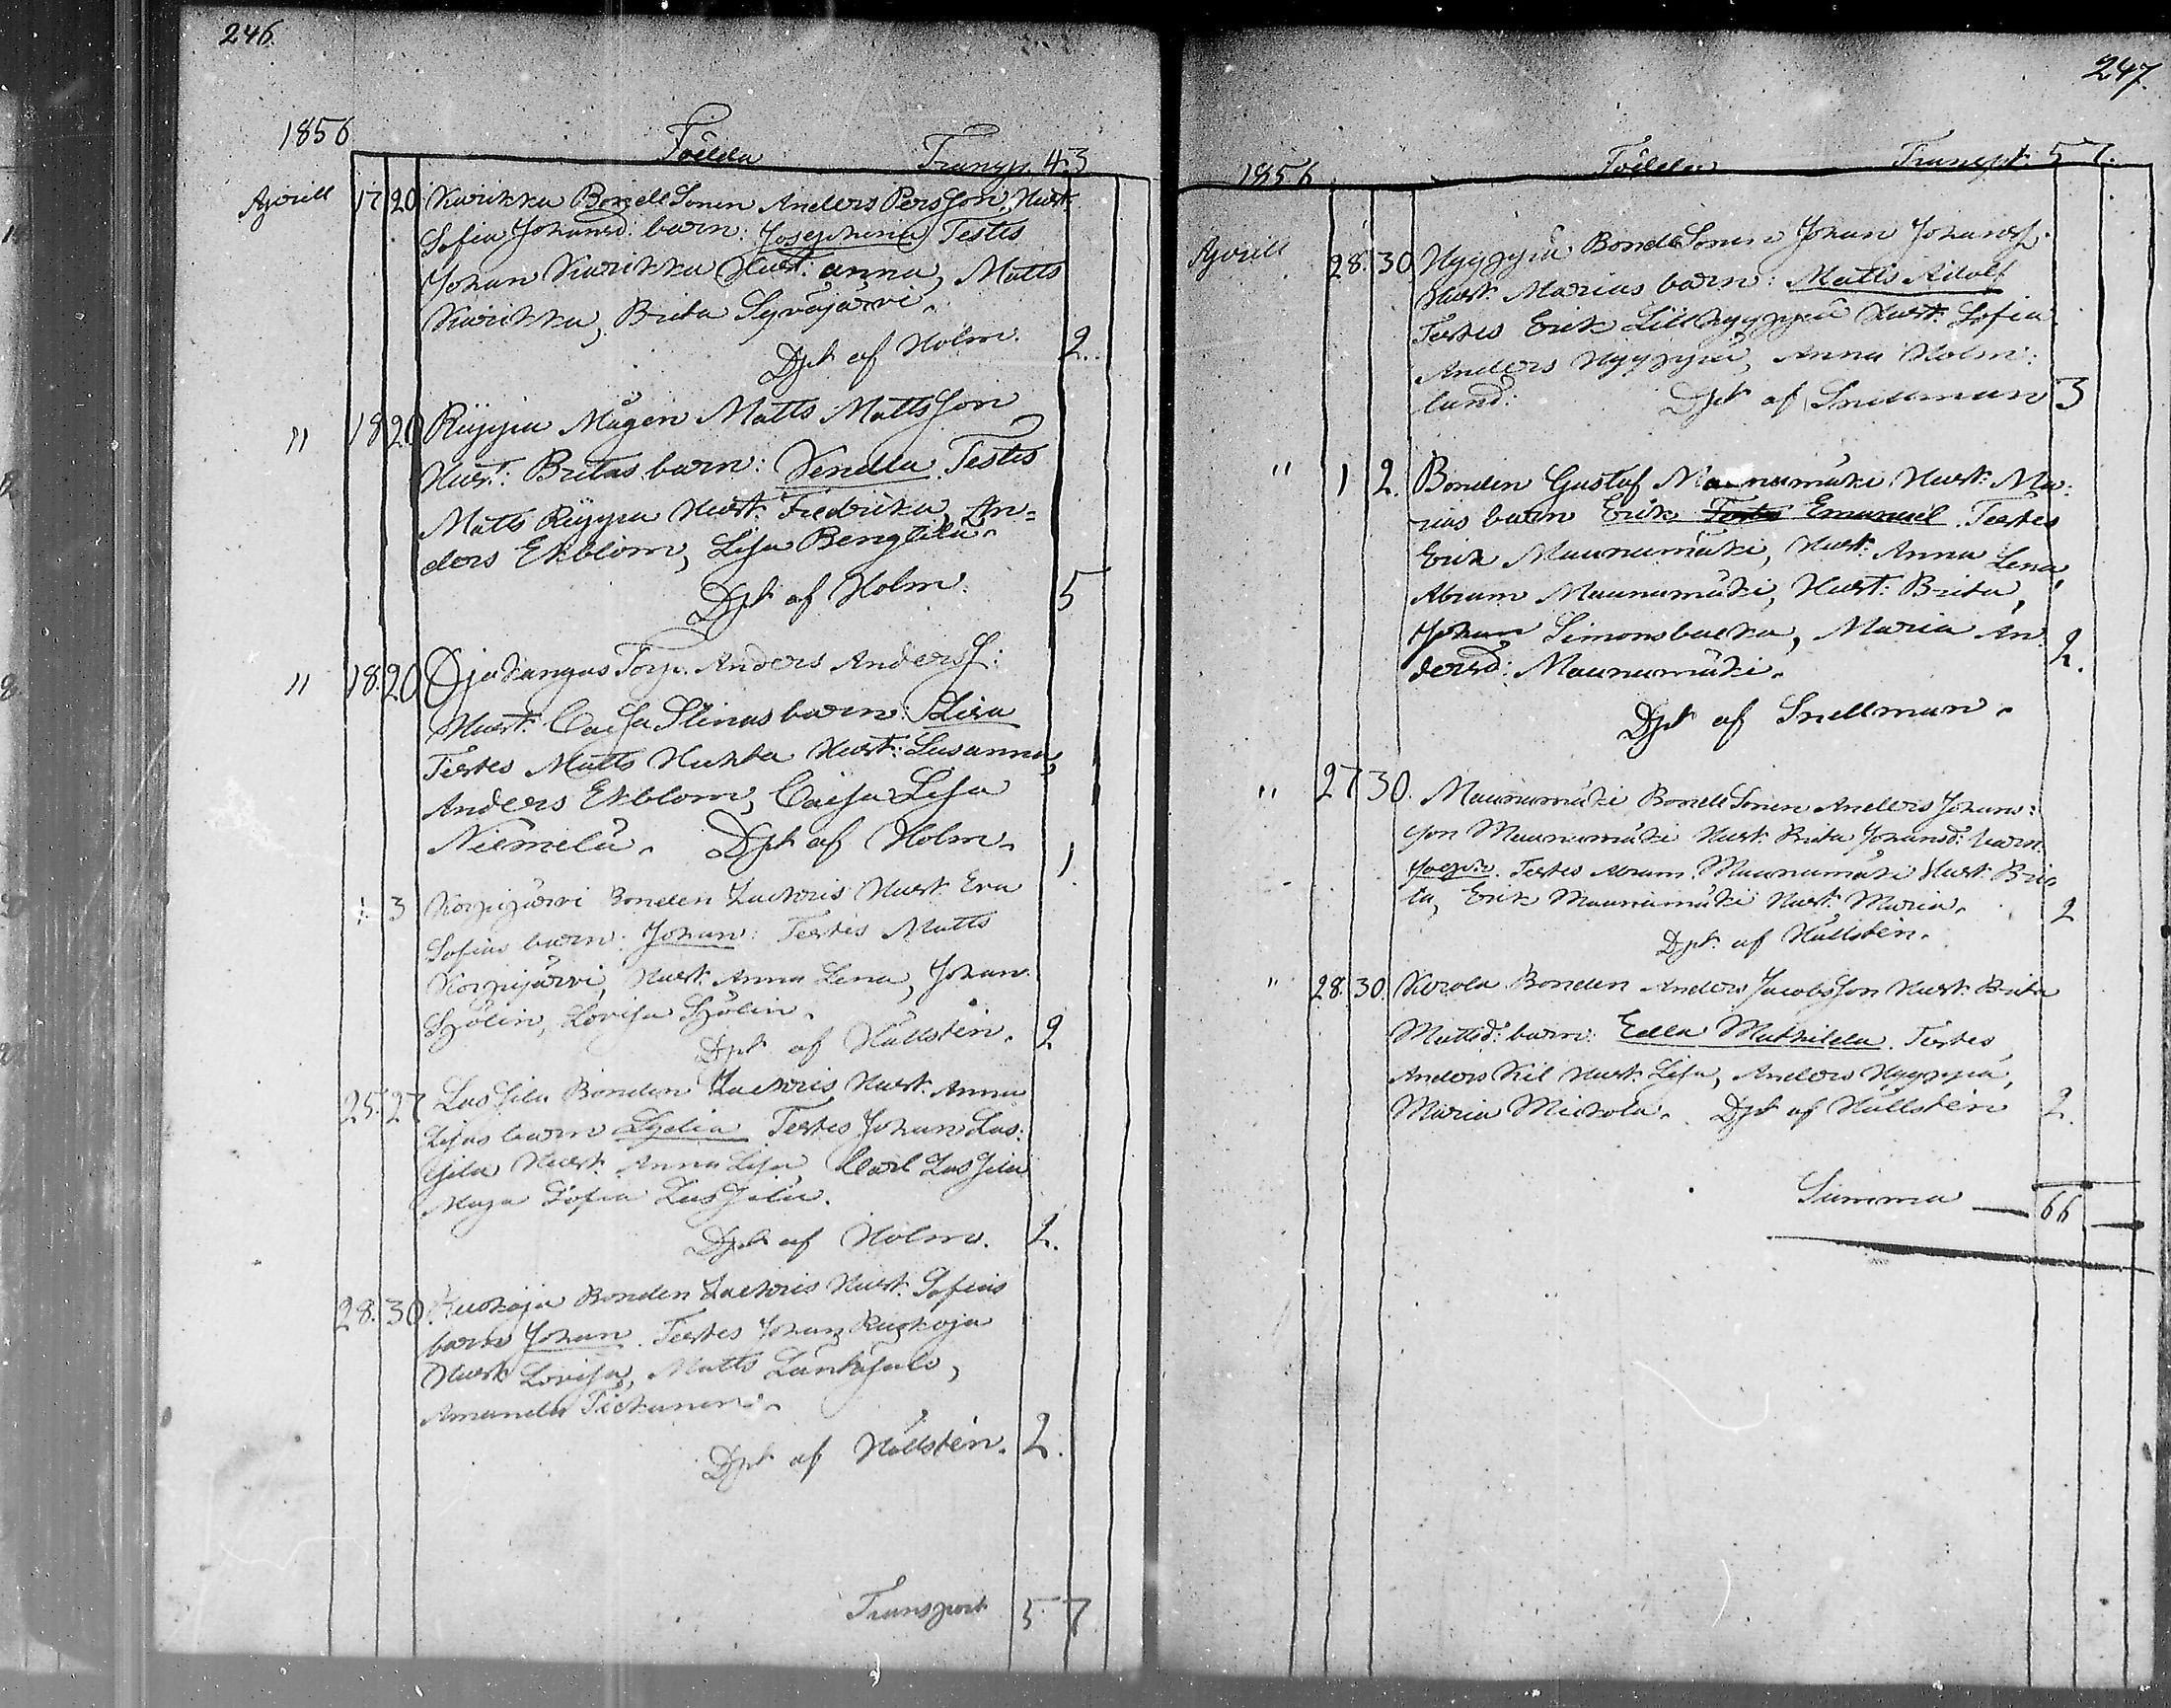 246.
1856
Födda Transp. 43
Aprill 17 20 Kurikka BondeSonen Anders Persson, Hust.
Sofia Johansd: barn: Josephina, Testes
Johan Kurikka Hust: Anna, Matts
Kurikka, Brita Syväjärvi.
Dpt af Holm. 2.
" 18 20 Rüppa Mågen Matts Mattsson
Hust: Britas barn: Vendla. Testes
Matts Rüppa Hust: Fredrika, An=
ders Ekblom, Lisa Bengtila.
Dpt af Holm. 5
" 18. 20 Ojakangas Torp. Anders Anderss:
Hust: Caisa Stinas barn:
Testes Matts Huhta Hust: Susanna,
Anders Ekblom, Caisa Lisa
Niemelä. Dpt af Holm. 1.
1. 3 Korpijärvi Bonden Zachris Hust. Eva
Sofias barn: Johan: Testes Matts
Korpijärvi, Hust. Anna Lena, Johan
Sjölin, Lovisa Sjölin.
Dpt af Hällsten. 2
25. 27 Lassila Bonden Zachris Hust. Anna
Lisas barn Lydia Testes Johan Las:
sila Hust. Anna Lisa, Carl Lassila
Maja Sofia Lassila.
Dpt af Holm. 2.
28. 30. Ruokoja Bonden Zachris Hust. Sofias
barn Johan. Testes Johan Ruokoja
Hust. Lovisa, Matts
Amanda Tickanen.
Dpt af Hällsten. 2.
Transport 57
247.
1856 Födda Transpt 57.
Aprill 28. 30 Hyyppä BondeSonen Johan Johanss.
Hust. Marias barn: Matts Adolf
Testes Erik Lillhyyppä Hust. Sofia
Anders Hyyppä, Anna Holm:
lund: Dpt af Snellman 3
" 1 2. Bonden Gustaf Maunumäki Hust: Ma:
rias barn Erik Testes Emanuel Testes
Erik Maunumäki, Hust: Anna Lena,
Abram Maunumäki, Hust: Brita,
Johan Simonsbacka, Maria An
dersd: Maunumäki. 2.
Dpt af Snellman.
" 27 30. Maunumäki BondeSonen Anders Johans:
son Maunumäki Hust. Brita Johansd: barn.
Testes Abram Maunumäki Hust. Bri
ta, Erik Maunumäki Hust. Maria. 2
Dpt. af Hällsten.
" 28. 30. Kerola Bonden Anders Jacobsson Hust. Brita
Mattsd: barn: Edla Mathilda. Testes,
Anders Kil Hust. Lisa, Anders Hyyppä,
Maria Mickola. Dpt af Hällsten 2.
Summa — 66 —